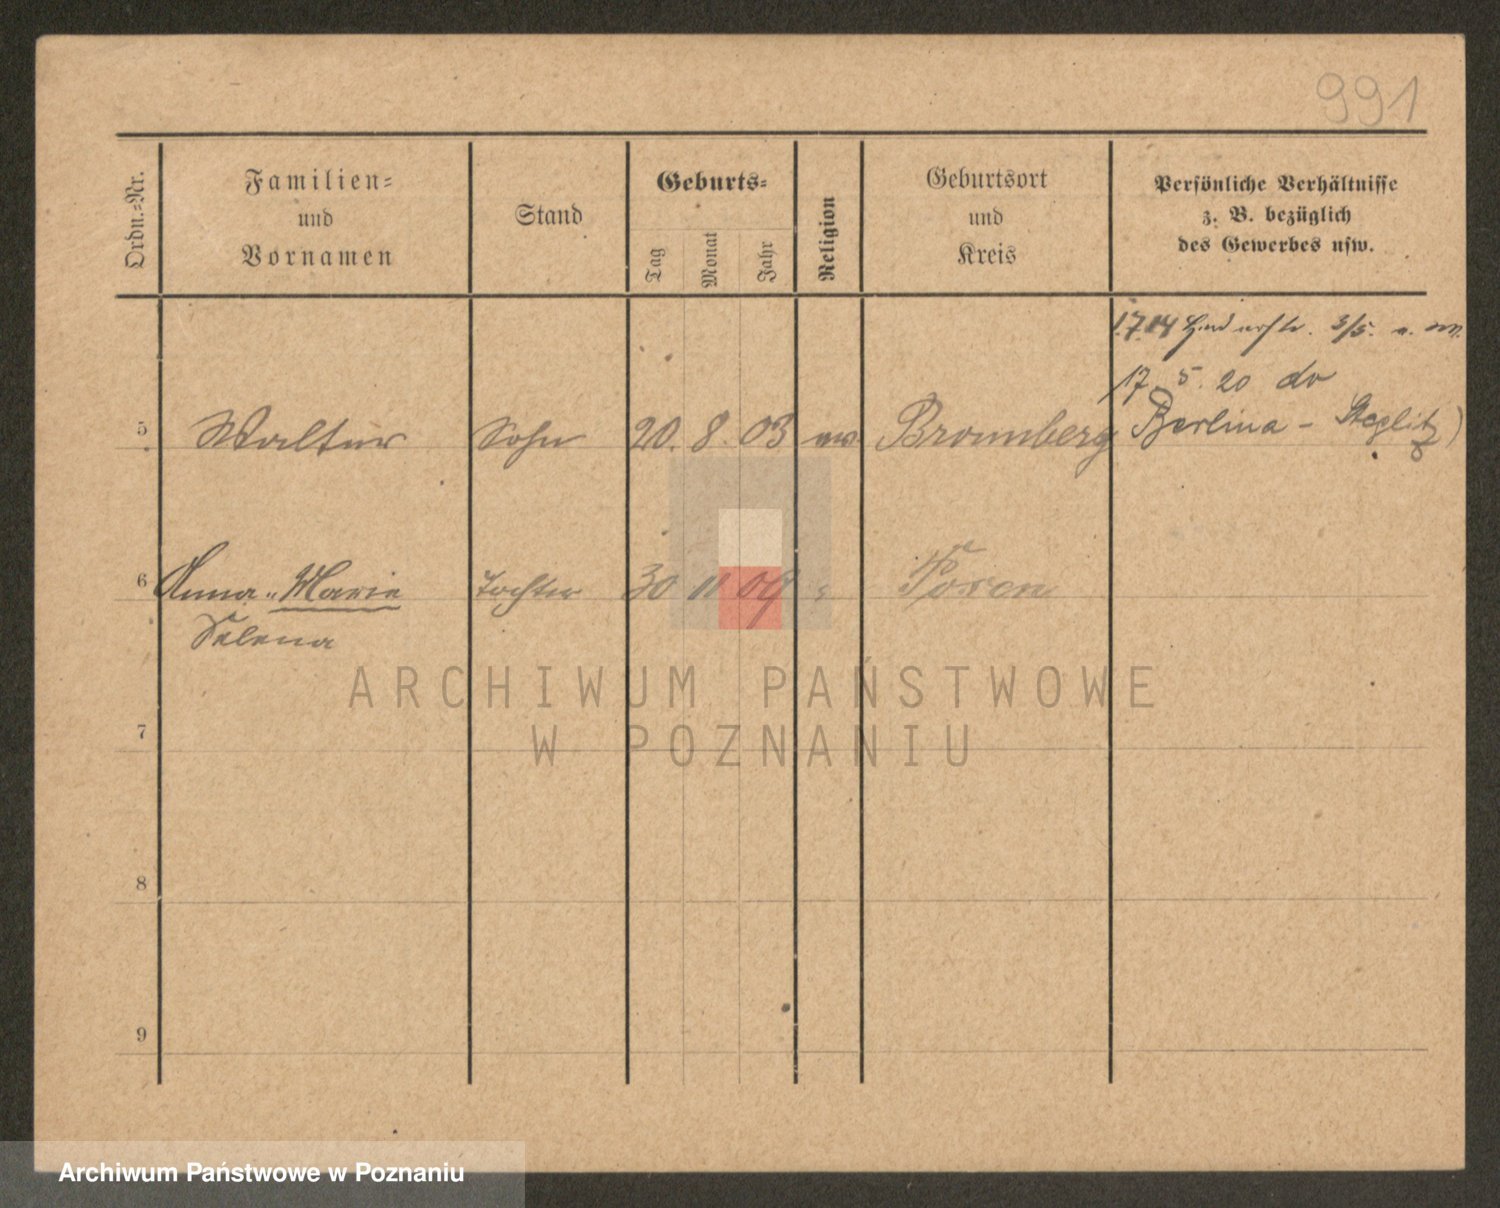 991
Ordn.=Nr.
Familien=
und
Vornamen
Stand
Geburts=
Tag
Monat
Jahr
Religion
Geburtsort
und
Kreis
Persönliche Verhältnisse
z. B. bezüglich
des Gewerbes usw.
1.7.14 3/5.
17. 5. 20 do
Berlina - Steglitz)
5 Walter Sohn 20. 8. 03 ev Bromberg
6 Anna-Marie Tochter 30 11 09 " Posen
Selena
7
8
9
ARCHIWUM PAŃSTWOWE
W POZNANIU
Archiwum Państwowe w Poznaniu